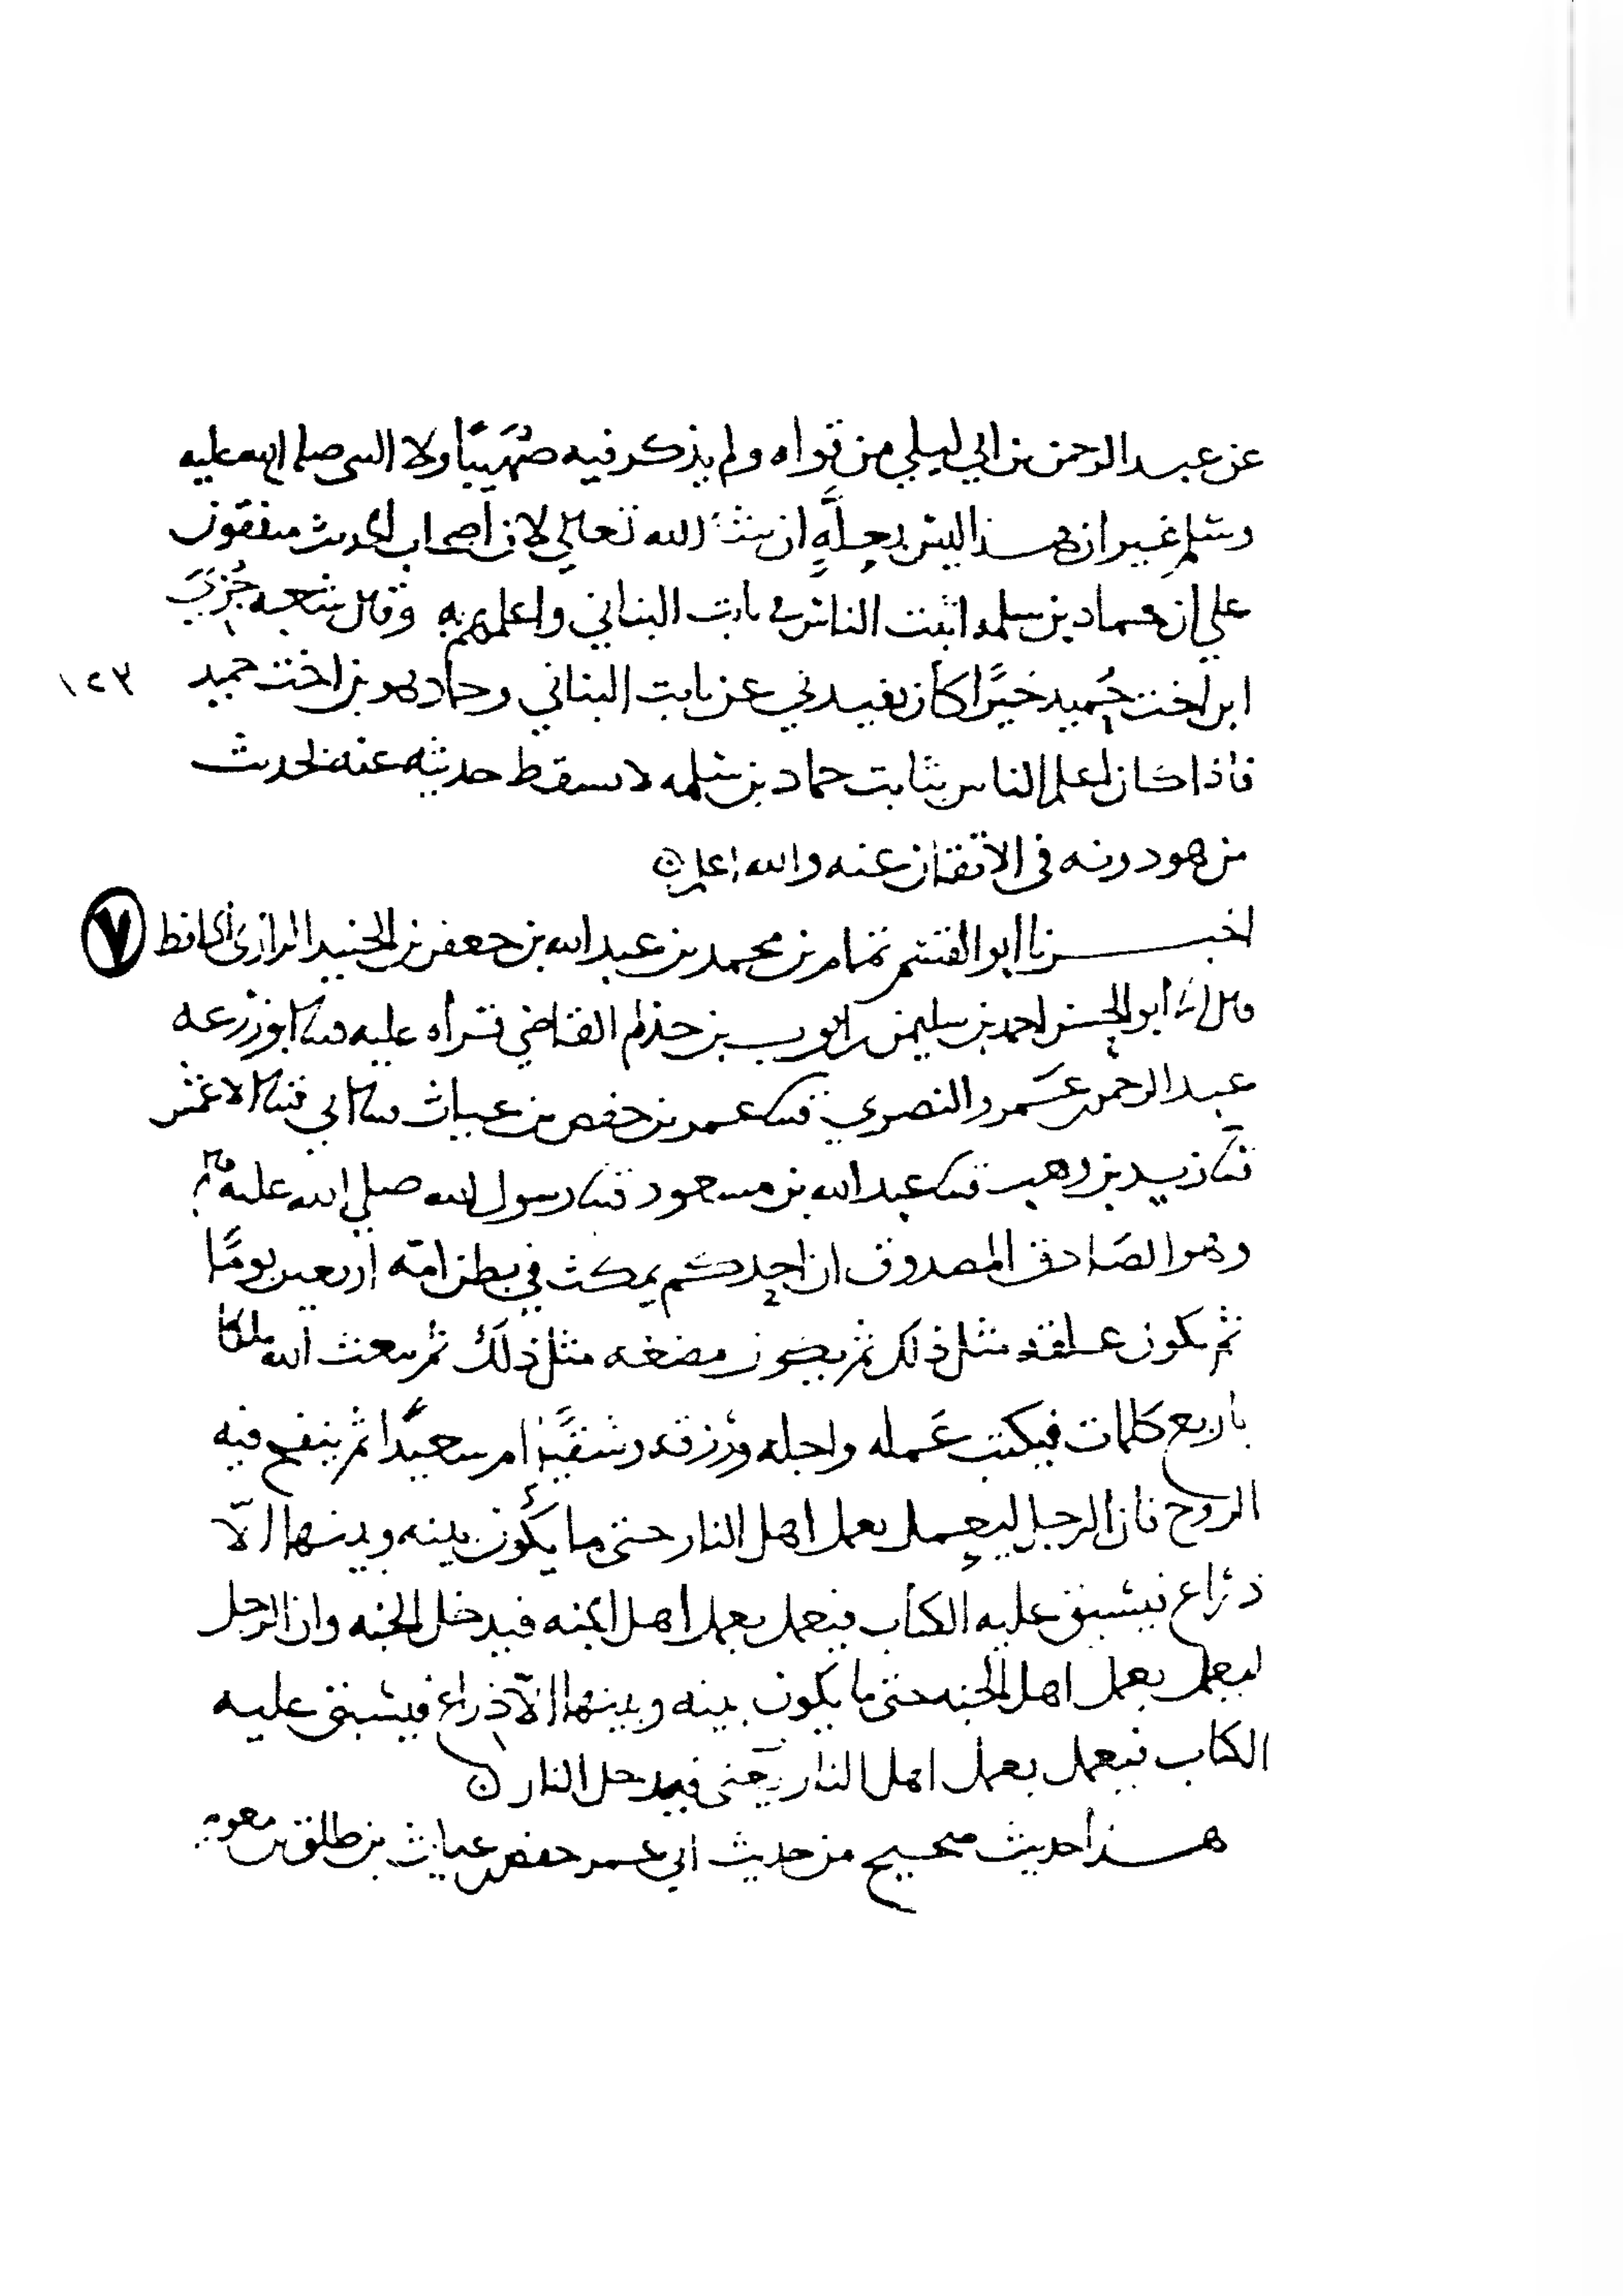 عن عبد الرحمن بن ابي ليلي من قوله ولم يذكر فيه صُهَيبًا ولا النبي صلى الله عليه
وسلم غير ان هذا ليس بعلَّةٍ ان شآ الله تعالي لان اصحاب الحديث متفقون
علي ان حماد بن سلمه اثبت الناس في ثابت البناني واعلمهم به وقال شعبه
ابن اخت حُميد خيرًا كان يفيدني عن ثابت البناني وحماد هو بن اخت حميد
١٢٣
فاذا كان اعلم الناس بثابت حماد بن سلمه لا يسقط حديثه عنه لحديث
من هو دونه في الاتقان عنه والله اعلم ن
اخبرنا ابو القسم تمام بن محمد بن عبد الله بن جعفر بن الجنيد الرازي الحافظ
٧
قال ابو الحسن احمد بن سليمن بن ايوب بن حذلم القاضي قراه عليه ثنا ابو زرعه
عبد الرحمن بن عَمرو النصري ثنا عمر بن حفص بن غياث ثنا ابي ثنا الاعمش
ثنا زيد بن وهب ثنا عبد الله بن مسعود ثنا رسول الله صلي الله عليه وسلم
وهو الصَادق المصدوق ان احدكم يمكث في بطن امّه اربعين يومًا
ثم يكون علقه مثل ذلك ثم يكون مضغه مثل ذلك ثم يبعث الله ملكا
باربع كلمات فيكتب عَمله واجله ورزقه وشقيًّا ام سعيدًا ثم ينفخ فيه
الروح فان الرجل ليعمل بعمل اهل النار حتى ما يكُون بينه وبينها الّا
ذراع فيسبق عليه الكتاب فيعمل بعمل اهل الجنه فيدخل الجنه وان الرجل
ليعمل بعمل اهل الجنه حتى ما يكون بينه وبينها الّا ذراع فيسبق عليه
الكتاب فيعمل بعمل اهل النار حتى فيدخل النار ن
هذا حديث صحيح من حديث ابي عمر حفص بن غياث بن طلق بن معويه